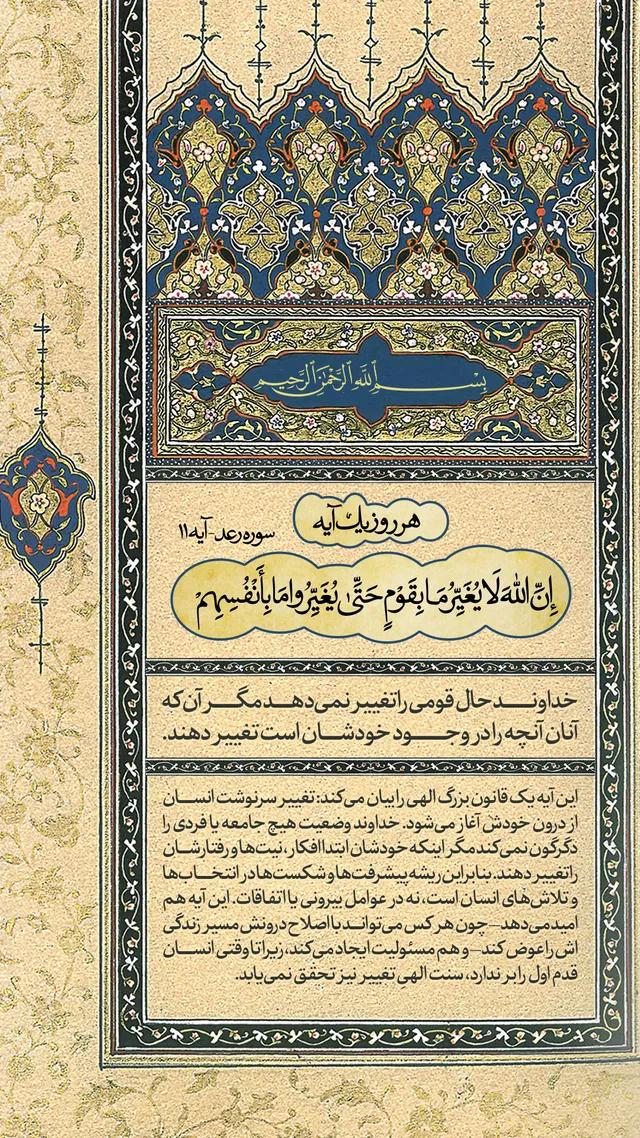 بِسْــــمِ ٱللَّهِ ٱلرَّحْمَٰنِ ٱلرَّحِيمِ
هر روز یک آیه
سوره رعد - آیه ۱۱
إِنَّ اللّٰهَ لَا يُغَيِّرُ مَا بِقَوْمٍ حَتَّىٰ يُغَيِّرُوا مَا بِأَنْفُسِهِمْ
خداونـــد حال قومی را تغییر نمی‌دهـد مگـــر آن که
آنان آنچه را در وجـــود خودشـــان است تغییر دهند.
این آیه یک قانون بزرگ الهی را بیان می‌کند: تغییر سرنوشت انسـان
از درون خودش آغاز می‌شود. خداوند وضعیت هیچ جامعه یا فردی را
دگرگون نمی‌کند مگر اینکه خودشان ابتدا افکار، نیت‌ها و رفتارشان
را تغییر دهند. بنابراین ریشه پیشرفت‌ها و شکست‌ها در انتخاب‌ها
و تلاش‌های انسان است، نه در عوامل بیرونی یا اتفاقات. این آیه هم
امید می‌دهد—چون هر کس می‌تواند با اصلاح درونش مسیر زندگی
اش را عوض کند—و هم مسئولیت ایجاد می‌کند، زیرا تا وقتی انسـان
قدم اول را بر ندارد، سنت الهی تغییر نیز تحقق نمی‌یابد.